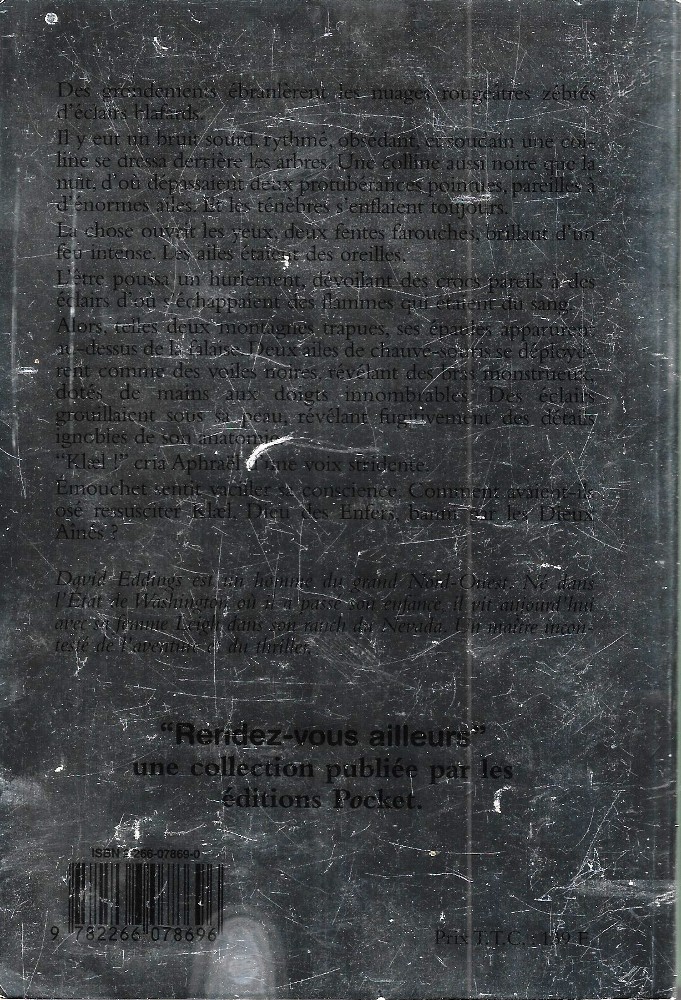 Des grondements ébranlèrent les nuages rougeâtres zébrés
d'éclairs blafards.
Il y eut un bruit sourd, rythmé, obsédant, et soudain une col-
line se dressa derrière les arbres. Une colline aussi noire que la
nuit, d'où dépassaient deux protubérances pointues, pareilles à
d'énormes ailes. Et les ténèbres s'enflaient toujours.
La chose ouvrit les yeux, deux fentes farouches, brillant d'un
feu intense. Les ailes étaient des oreilles.
L'être poussa un hurlement, dévoilant des crocs pareils à des
éclairs d'où s'échappaient des flammes qui étaient du sang.
Alors, telles deux montagnes trapues, ses épaules apparurent
au-dessus de la falaise. Deux ailes de chauve-souris se déployè-
rent comme des voiles noires, révélant des bras monstrueux,
dotés de mains aux doigts innombrables. Des éclairs
grouillaient sous sa peau, révélant fugitivement des détails
ignobles de son anatomie.
“Klæl !” cria Aphraël d'une voix stridente.
Émouchet sentit vaciller sa conscience. Comment avaient-ils
osé ressusciter Klæl, Dieu des Enfers, banni par les Dieux
Aînés ?
David Eddings est un homme du grand Nord-Ouest. Né dans
l'État de Washington où il a passé son enfance, il vit aujourd'hui
avec sa femme Leigh dans son ranch du Nevada. Un maître incon-
testé de l'aventure et du thriller.
“Rendez-vous ailleurs”
une collection publiée par les
éditions Pocket.
ISBN 2-266-07869-0
9 782266 078696
Prix T.T.C. : 139 F